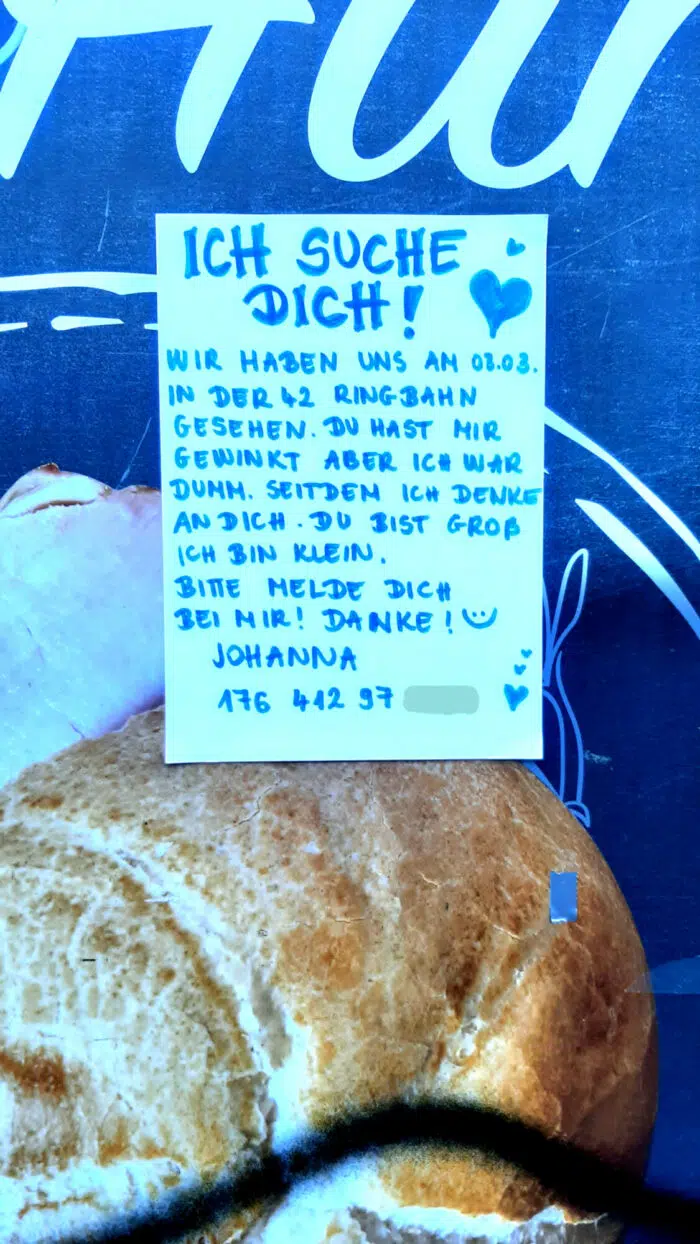 ICH SUCHE
DICH!
WIR HABEN UNS AM 03.03.
IN DER 42 RINGBAHN
GESEHEN. DU HAST MIR
GEWINKT ABER ICH WAR
DUMM. SEITDEM ICH DENKE
AN DICH. DU BIST GROß
ICH BIN KLEIN.
BITTE MELDE DICH
BEI MIR! DANKE!
JOHANNA
176 412 97